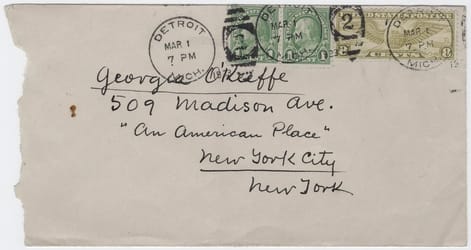 DETROIT
MAR. 1
7 PM
MICH.
DETROIT
MAR. 1
7 PM
MICH.
DETROIT
MICH.
2
1
1
UNITED STATES POSTAGE
8
8
Georgia O'Keffe
509 Madison Ave.
"An American Place"
New York City
New York